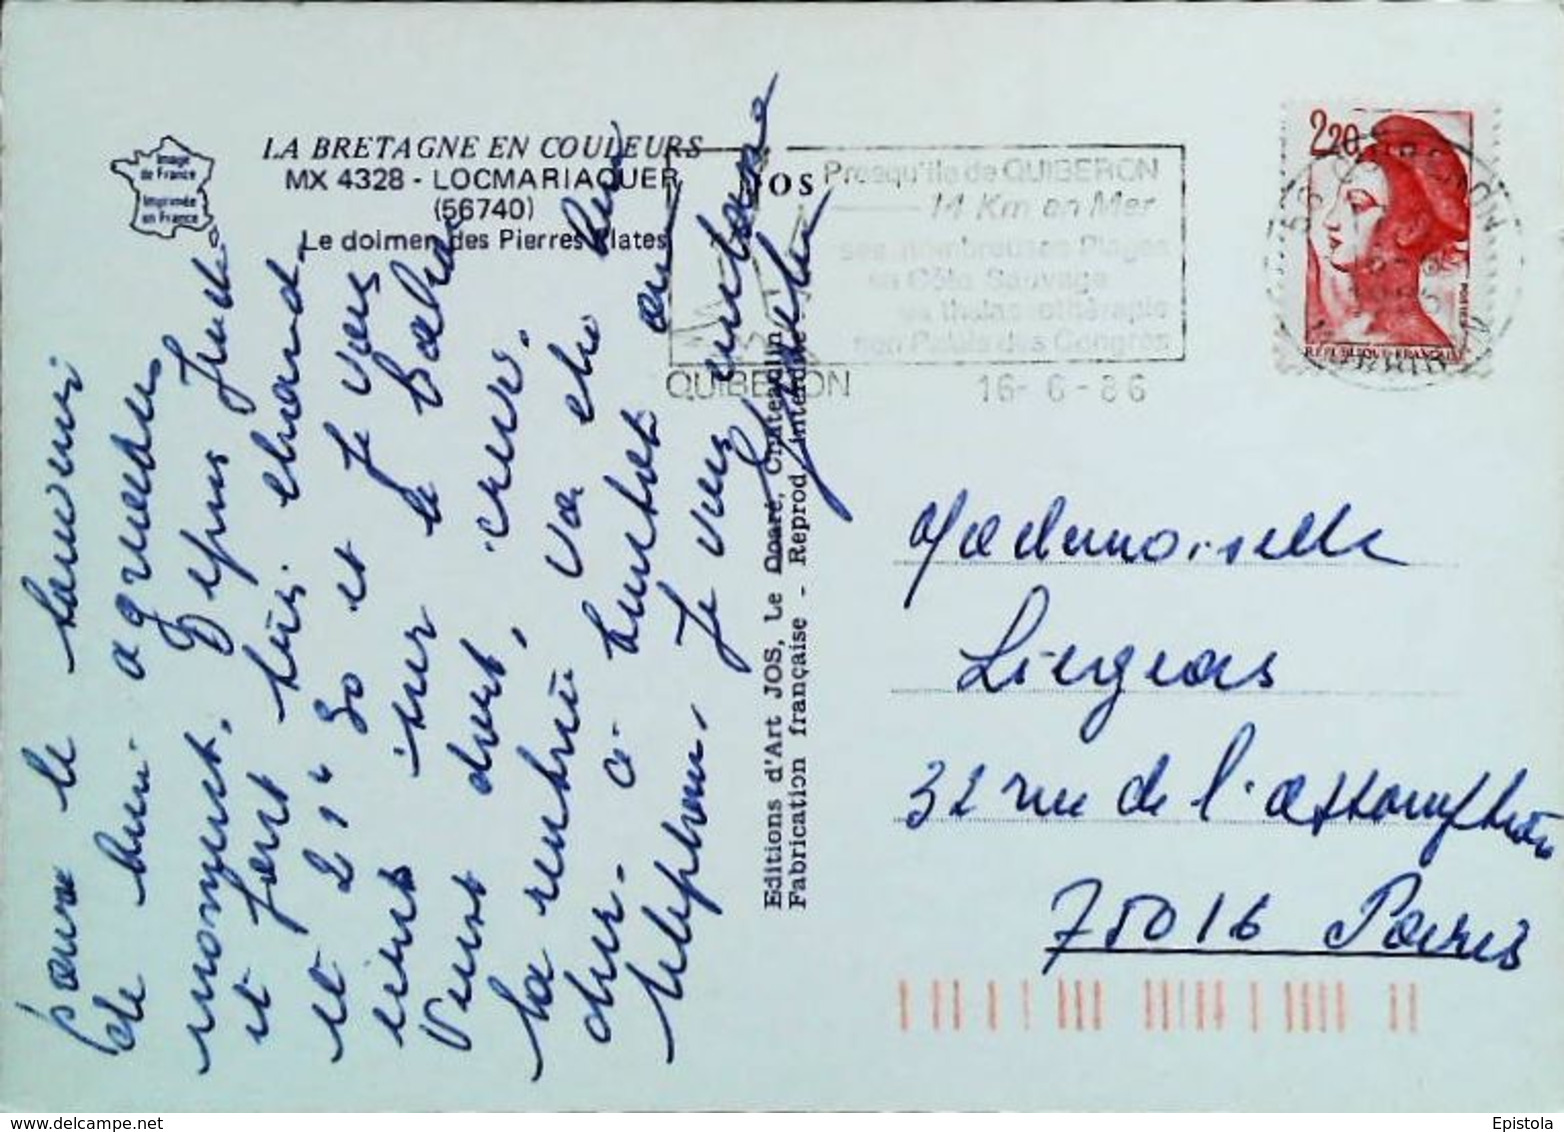 Image
de France
Imprimée
en France
LA BRETAGNE EN COULEURS
MX 4328 - LOCMARIAQUER
(56740)
Le dolmen des Pierres Plates
JOS
Presqu'île de QUIBERON
14 Km en Mer
ses nombreuses Plages
sa Côte Sauvage
sa thalassothérapie
son Palais des Congrès
QUIBERON 16-6-86
2,20
POSTES
REPUBLIQUE FRANÇAISE
Editions d'Art JOS, Le Doaré, Châteaulin
Fabrication française - Reprod. interdite
pour le souvenir
de bien agréables
moments. Depuis jeudi
il fait très chaud
et 21 30 et je vous
écris sur le bateau
Vent doux,
la rentrée va être bien
dure. à bientôt au
téléphone. Je vous embrasse
Mademoiselle
Liegeois
32 rue de l'assomption
75016 Paris
Epistola